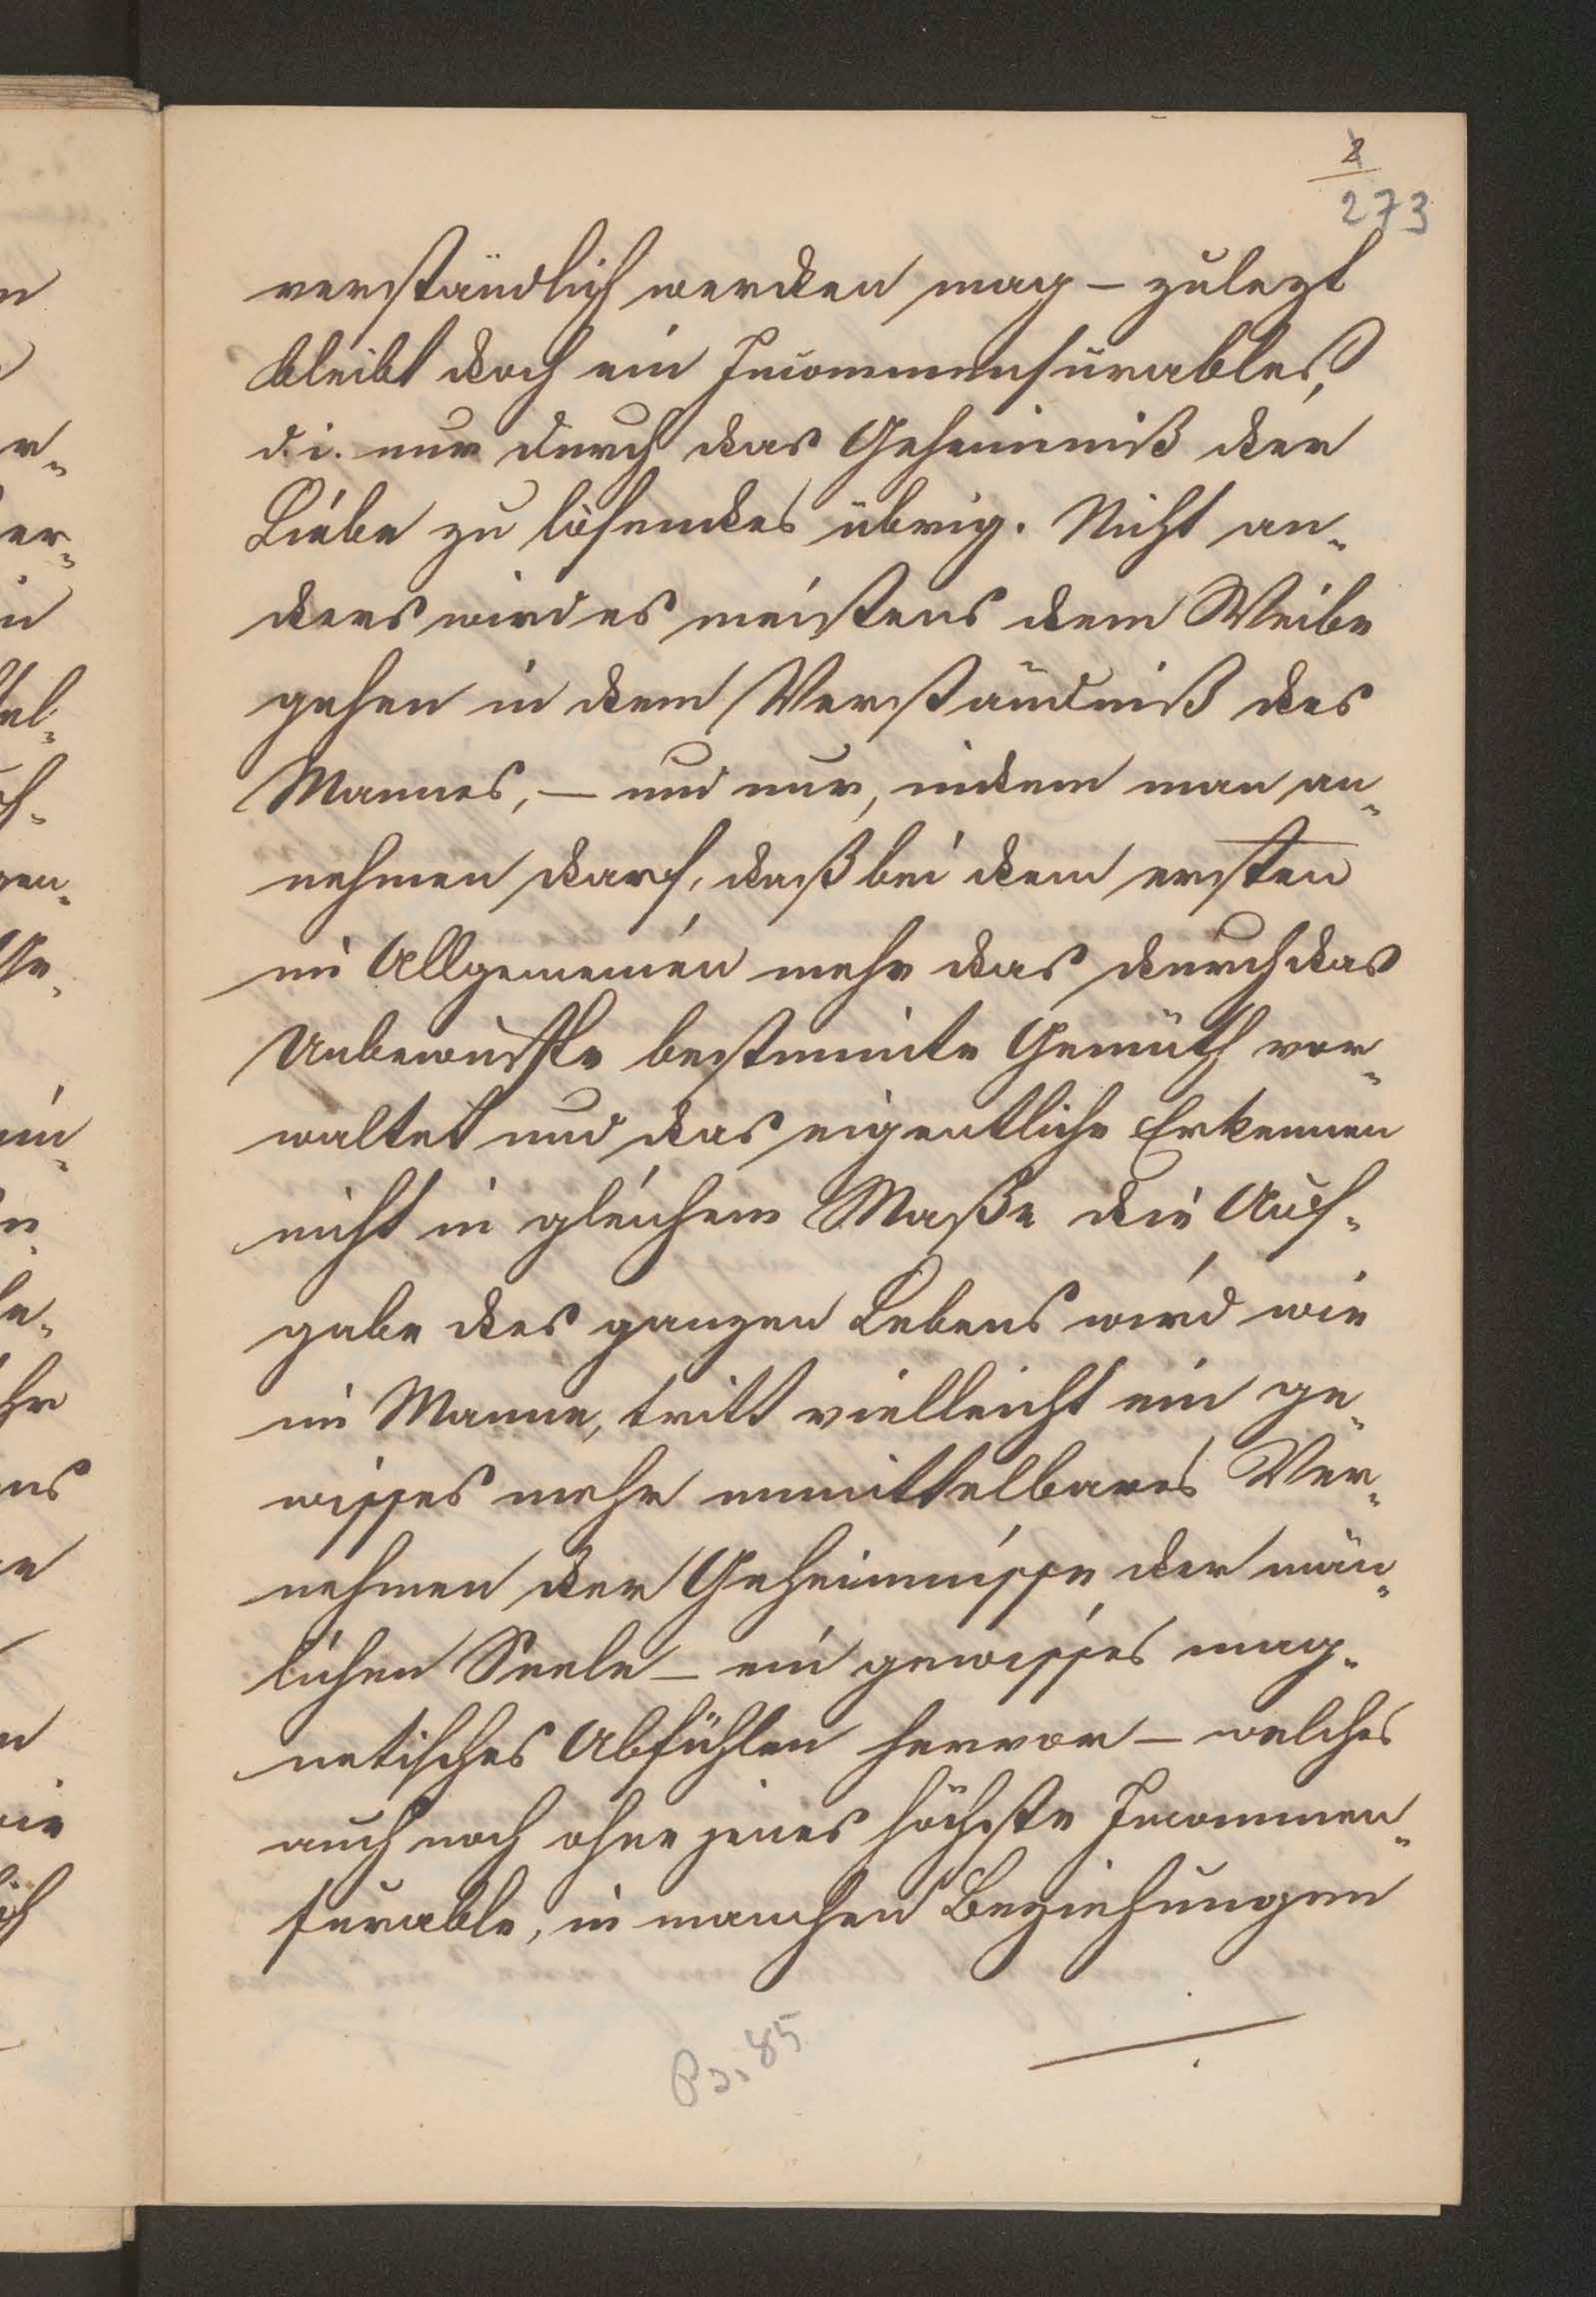 2
273
verständlich werden mag – zulezt
bleibt doch ein Incommensurables,
d. i. nur durch das Geheimniß der
Liebe zu lösendes übrig. Nicht an-
ders wird es meistens dem Weibe
gehen in dem Verständniß des
Mannes, – und nur, indem man an-
nehmen darf, daß bei dem ersten
im Allgemeinen mehr das durch das
Unbewußte bestimmte Gemüth vor-
waltet und das eigentliche Erkennen
nicht in gleichem Maße die Auf-
gabe des ganzen Lebens wird wie
im Manne, tritt vielleicht ein ge-
wisses mehr unmittelbares Ver-
nehmen der Geheimnisse der män-
lichen Seele – ein gewisses mag-
netisches Abfühlen hervor – welches
auch noch ohne jenes höchste Incommen-
surable, in manchen Beziehungen